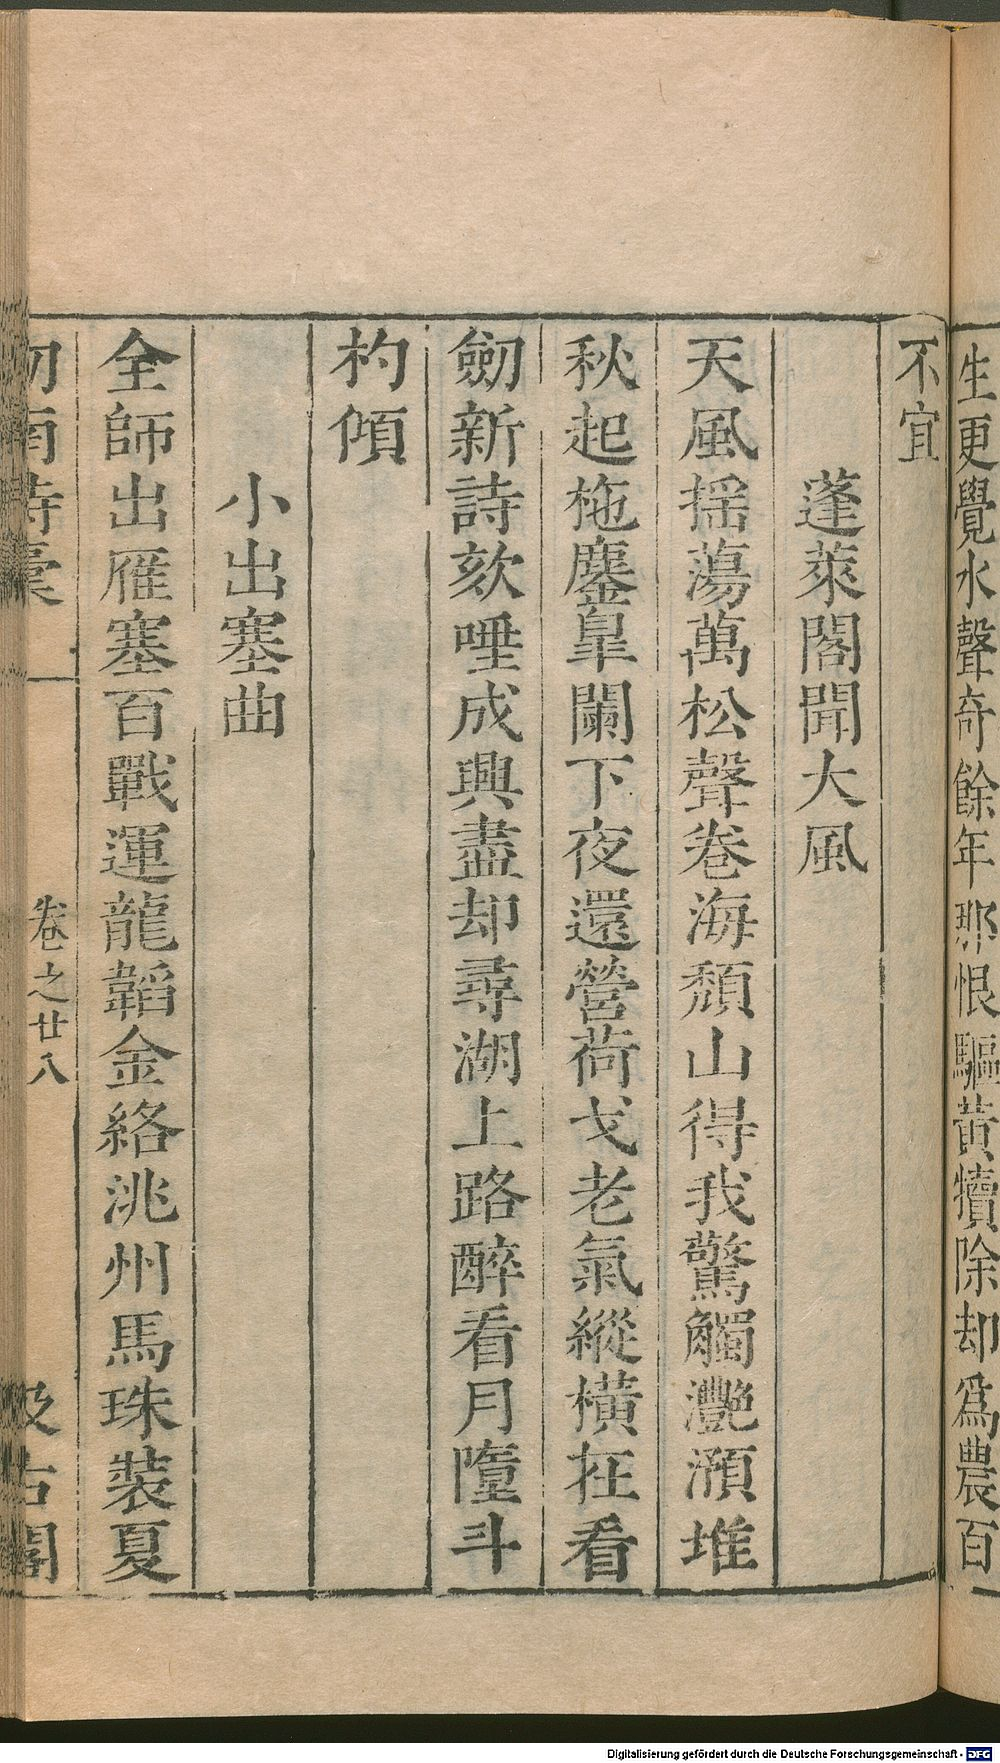 生更覺水聲奇餘年那恨驅黃犢除却爲農百
不宜
蓬萊閣聞大風
天風揺蕩萬松聲卷海頽山得我驚觸灔澦堆
秋起柂鏖臯闌下夜還營荷戈老氣縱橫在看
劒新詩欬唾成興盡却尋湖上路醉看月墮斗
杓傾
小出塞曲
全師出雁塞百戰運龍韜金絡洮州馬珠装夏
劒南詩稾
卷之廿八
汲古閣
Digitalisierung gefördert durch die Deutsche Forschungsgemeinschaft - DFG